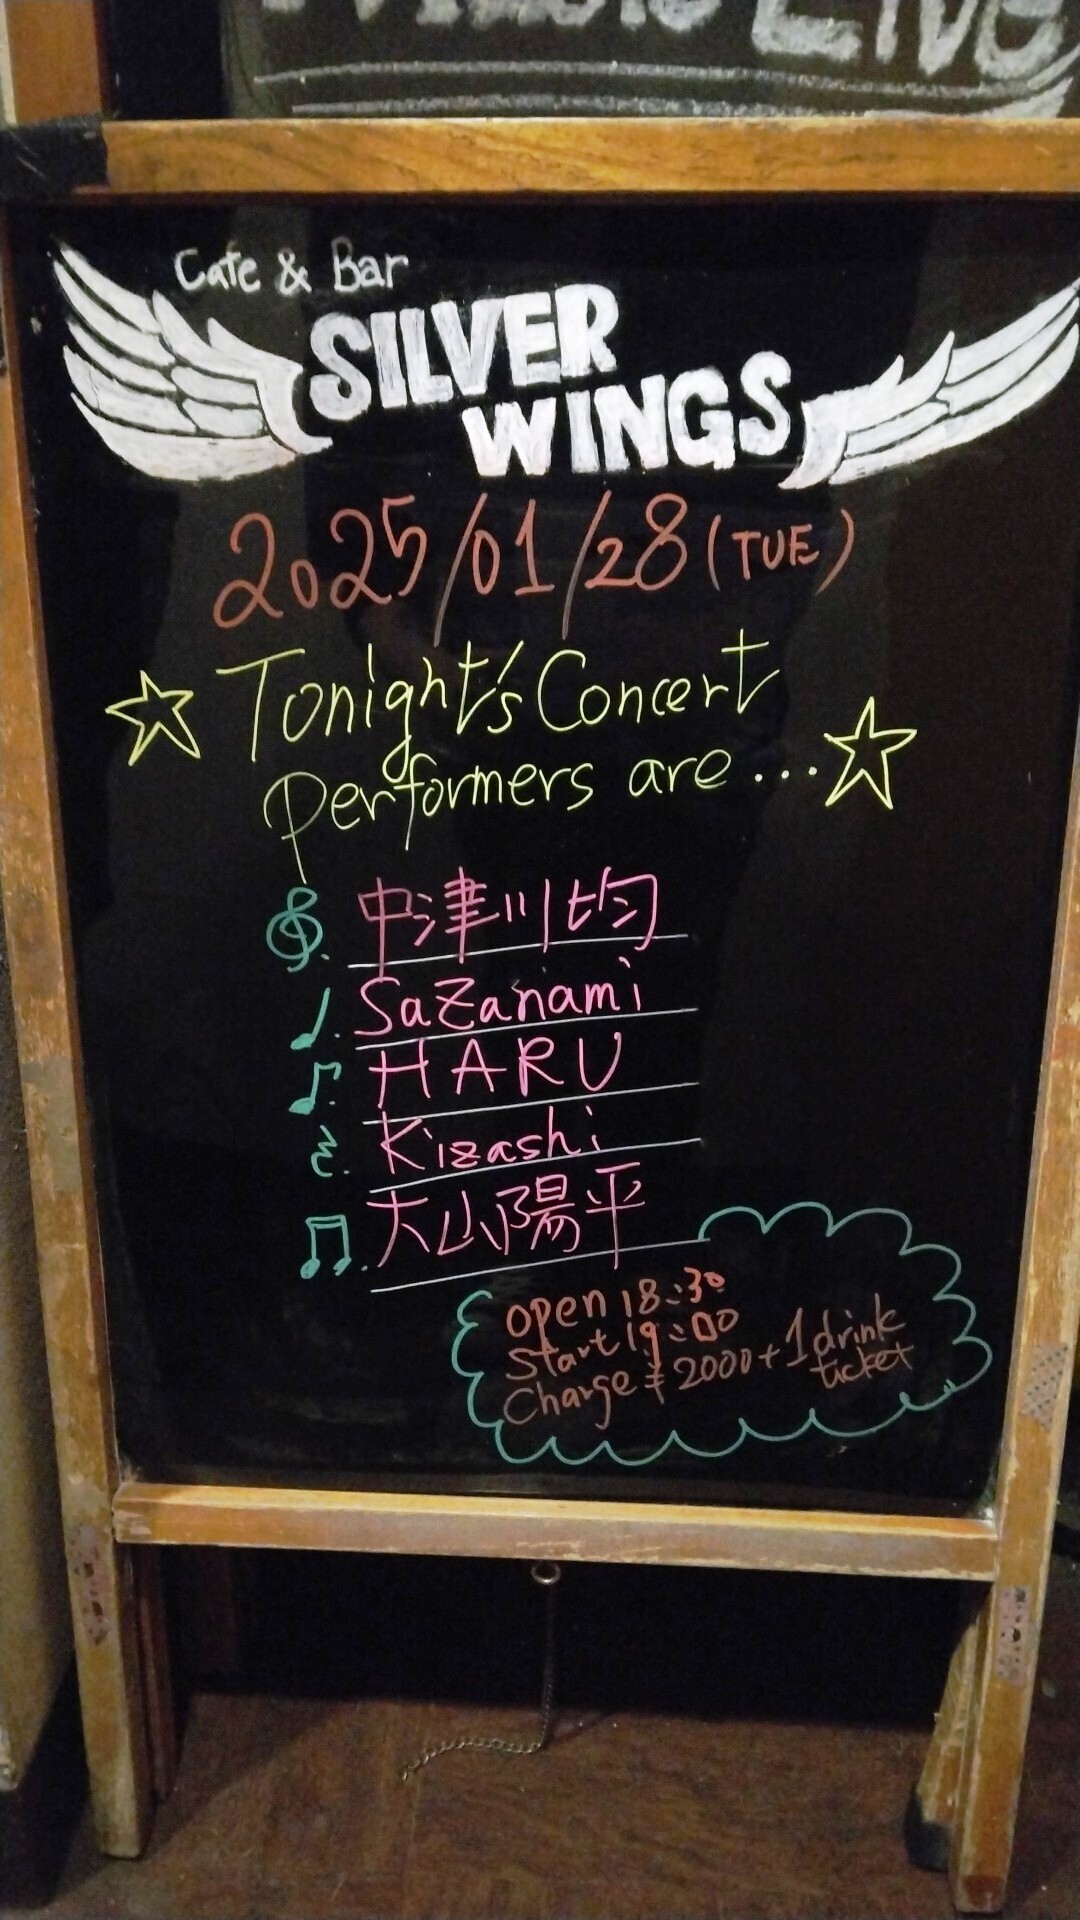 Music Live
Cafe & Bar
SILVER
WINGS
2025/01/28(TUE)
☆ Tonight's Concert
performers are...☆
中津川均
SaZanami
HARU
Kizashi
大山陽平
open 18:30
Start 19:00
Charge ¥2000+1drink
ticket